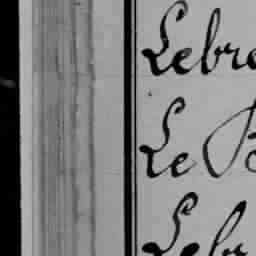 Lebre
Le B
Lebr